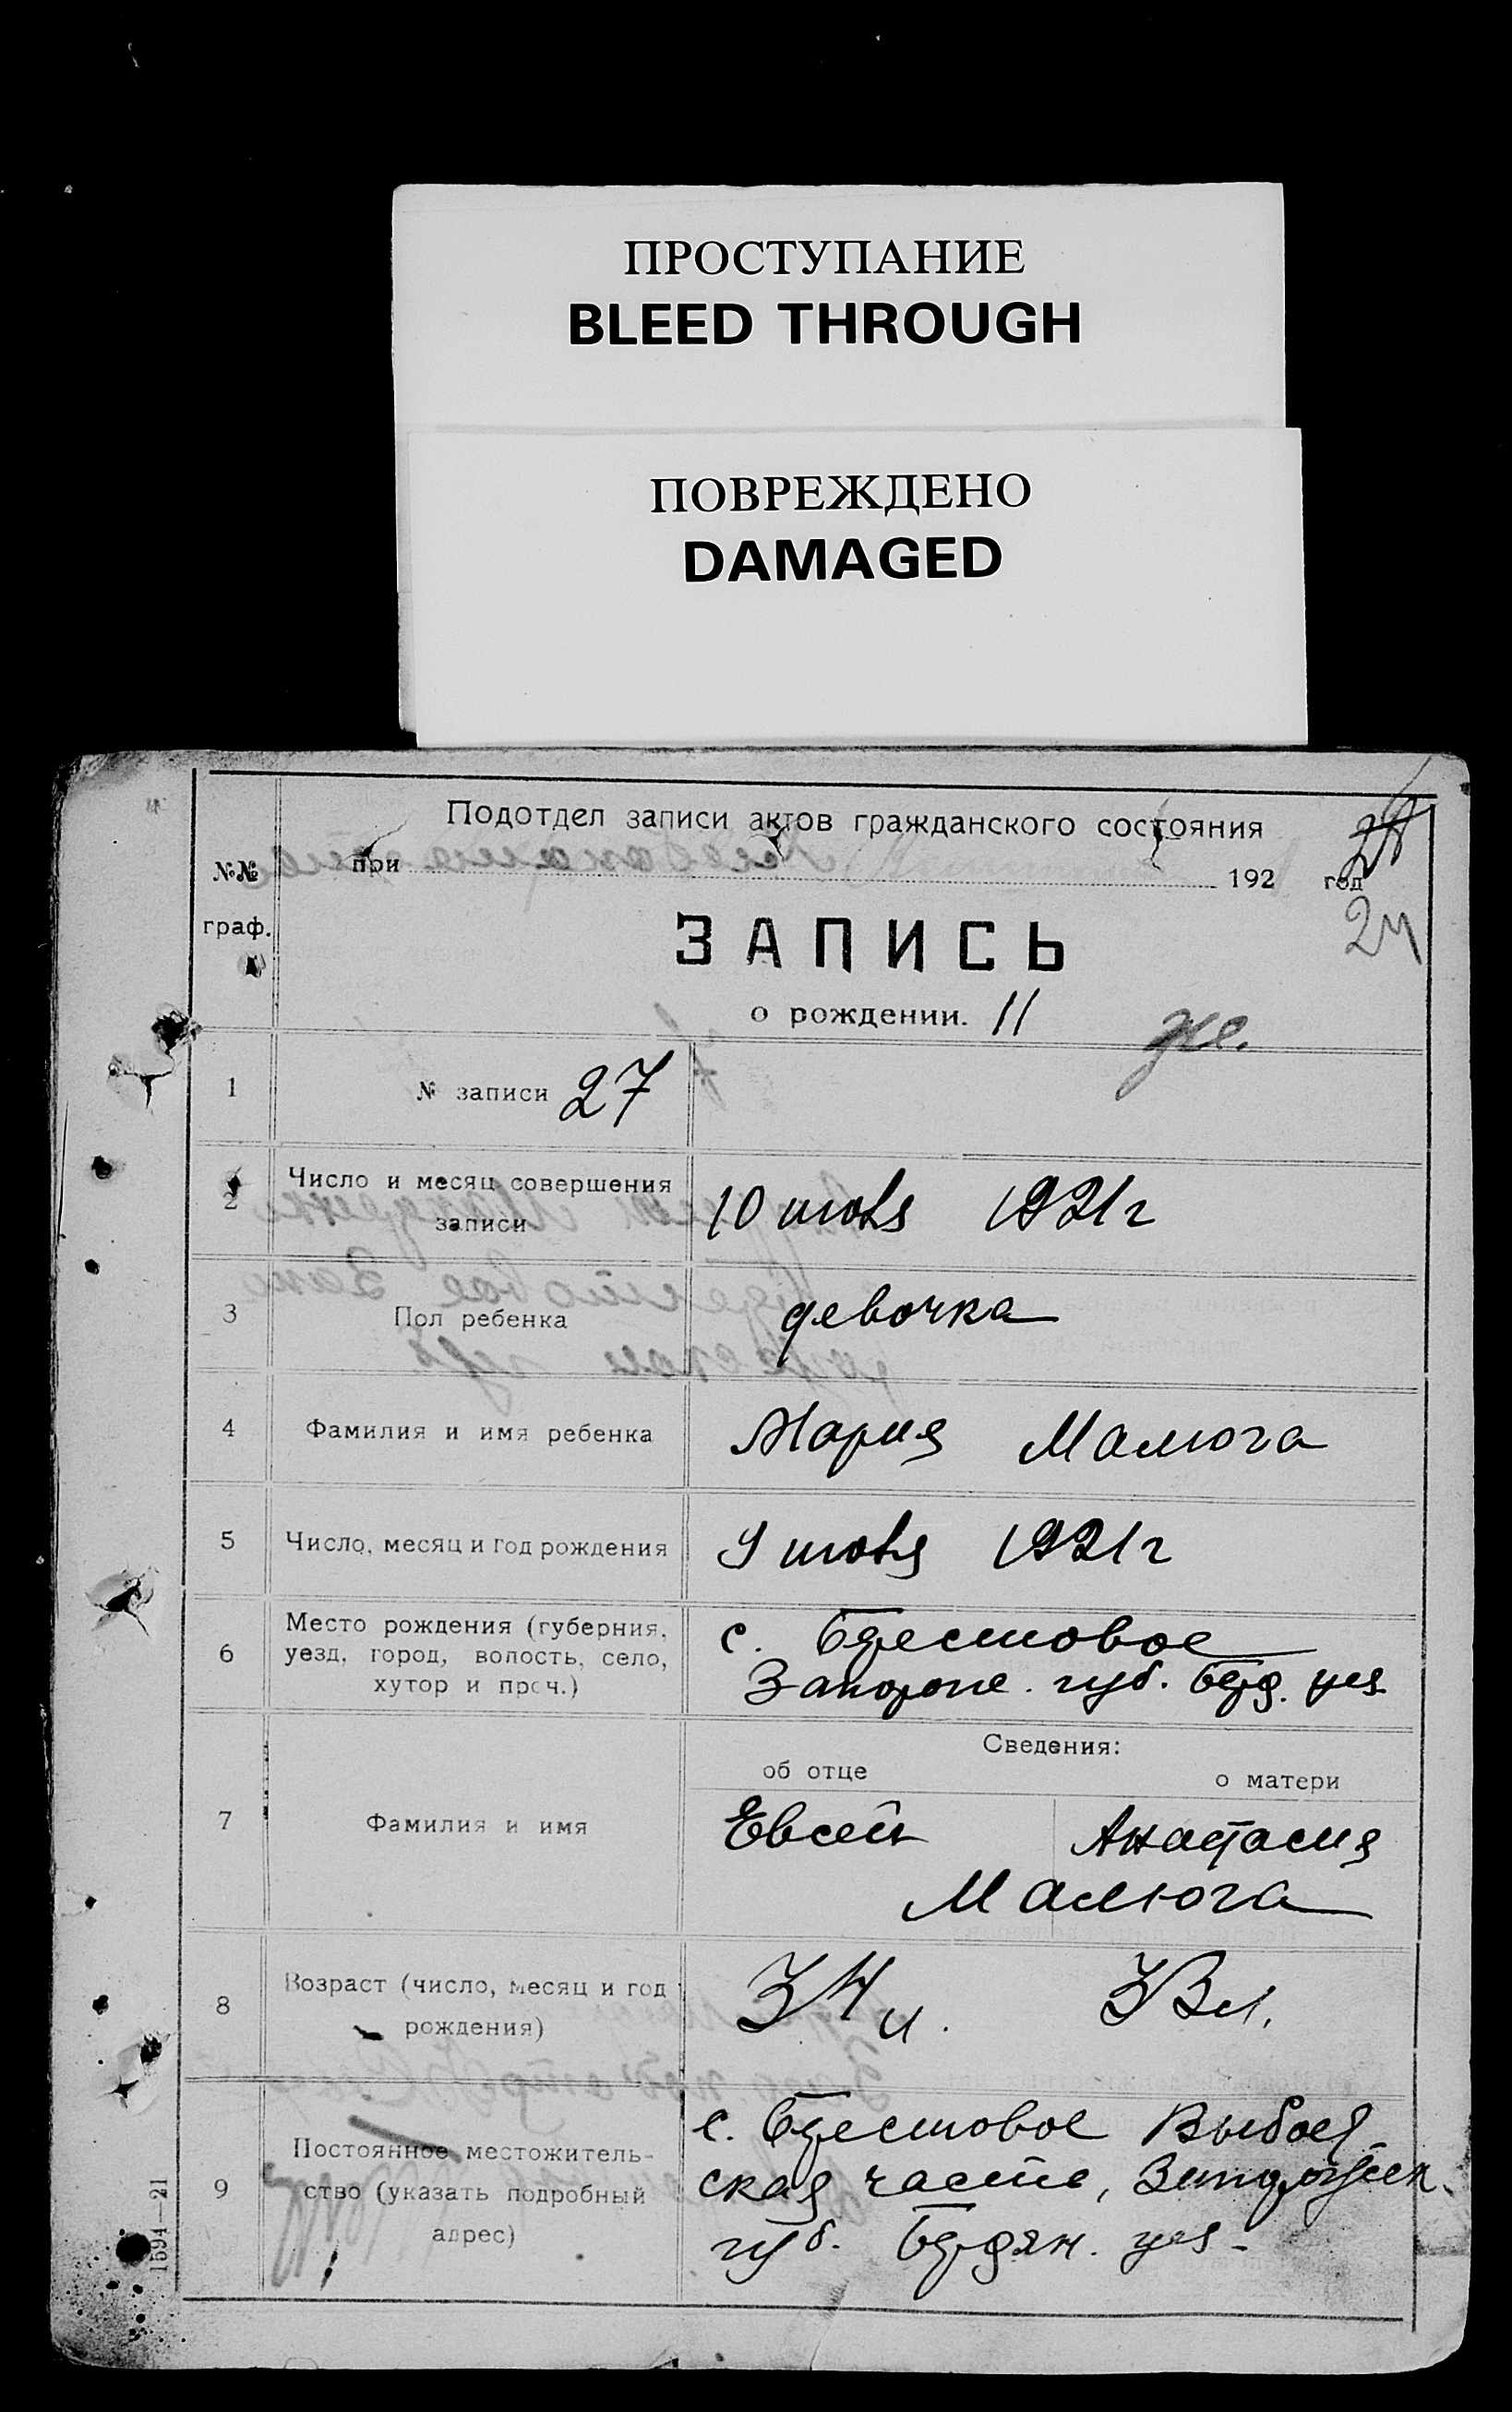 ПРОСТУПАНИЕ
BLEED THROUGH
ПОВРЕЖДЕНО
DAMAGED
Подотдел записи актов гражданского состояния
28
№№ при 192 год
граф.
24
ЗАПИСЬ
о рождении. 11
же.
1 № записи 27
2 Число и месяц совершения
записи
10 июля 1921г
3 Пол ребенка девочка
4 Фамилия и имя ребенка Мария Малюга
5 Число, месяц и год рождения 9 июля 1921г
6 Место рождения (губерния,
уезд, город, волость, село,
хутор и проч.)
с. Берестовое
Запорож. губ. Берд. уез.
Сведения:
об отце о матери
7 Фамилия и имя Евсей Анастасия
Малюга
8 Возраст (число, месяц и год
рождения)
34 л. 33 л.
9 Постоянное местожитель-
ство (указать подробный
адрес)
с. Берестовое
ская часть, Запорожск.
губ. Бердян. уез.
1594—21